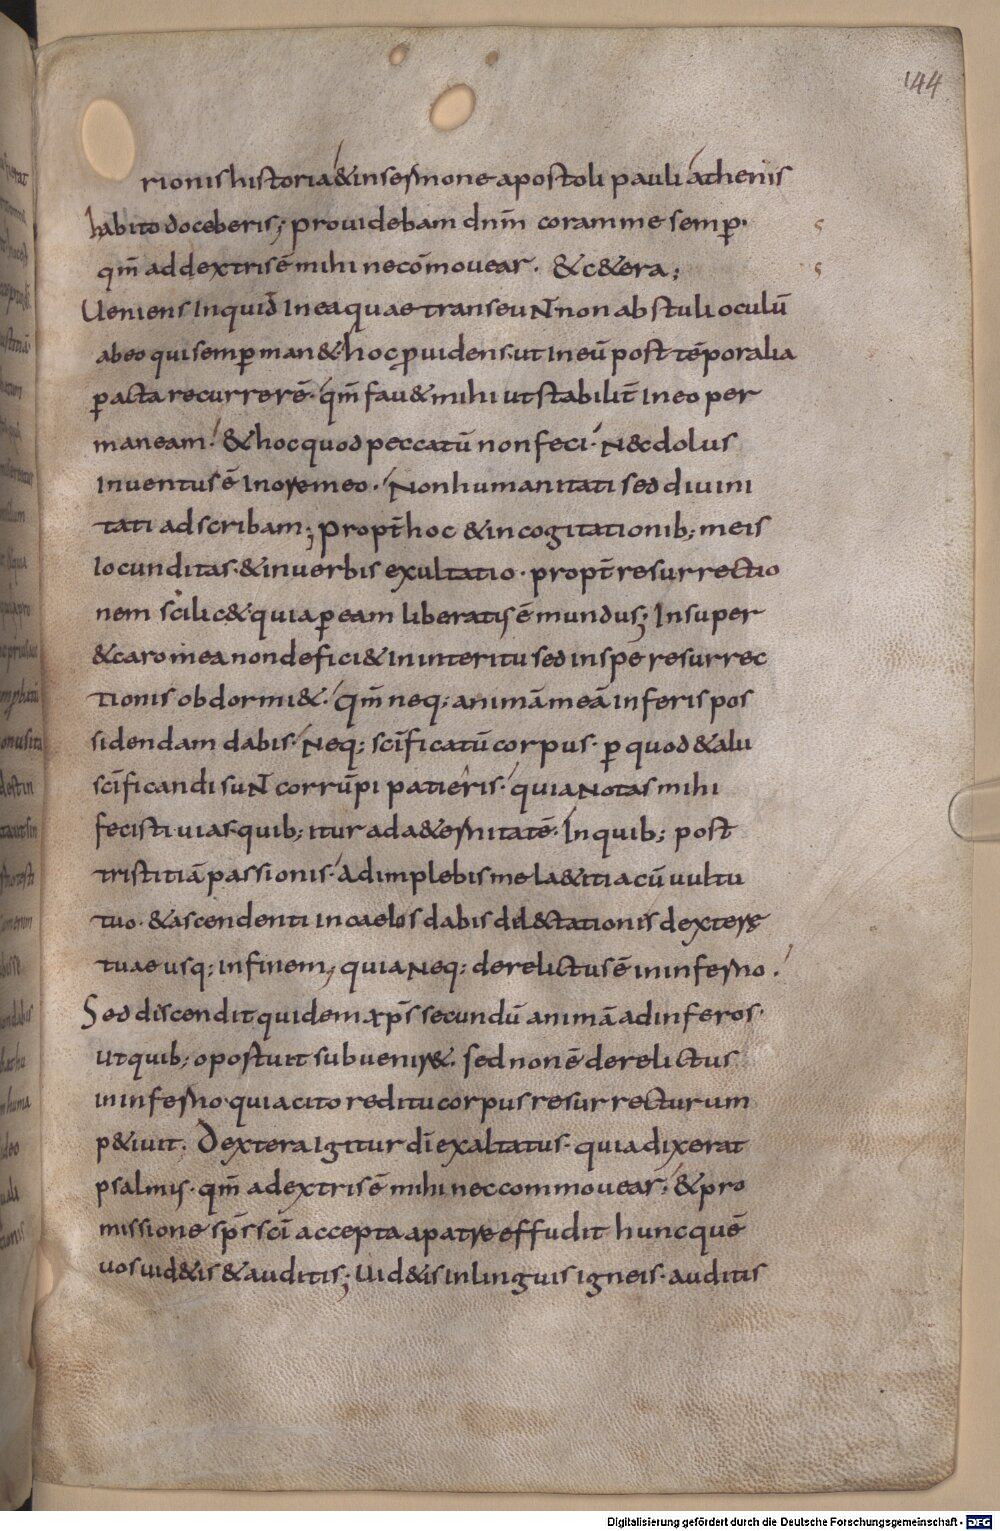 144
rionis historia & in sermone apostoli pauli athenis
habito doceberis; providebam dnm̄ coram me semp̱·
qm̄ ad dextris ē mihi ne cōmovear. & c&era;
Ueniens inquid̄ in ea quae transeuNT̄ non abstuli oculū
ab eo qui semp̱ man&· hoc p̱uidens· ut in eū post tēporalia
p̱acta recurrerē· qm̄ fau& mihi ut stabilit̄ in eo per
maneam· & hoc quod peccatū non feci· Nec dolus
inventus ē in ore meo· Non humanitati sed divini
tati adscribam; propt̄ hoc & in cogitationib; meis
iocunditas· & in uerbis exultatio· propt̄ resurrectio
nem scilic& quia p̱ eam liberatus ē mundus; Insuper
& caro mea non defici& in interitu sed in spē resurrec
tionis obdormi&· qm̄ neq; animā meā inferis pos
sidendam dabis· Neq; sc̄ificatū corpus· p̱ quod & alii
sc̄ificandi suNT̄ corrūpi patieris· quia Notas mihi
fecisti uias· quib; itur ad a&ernitatē· In quib; post
tristitiā passionis· Adimplebis me la&itia cū uultu
tuo· & ascendenti in caelos dabis del&tationis dexterę
tuae usq; in finem; quia Neq; derelictus ē in inferno·
Sed discendit quidem xp̄s secundū animā ad inferos·
ut quib; oportuit subvenir&· sed non ē derelictus
in inferno· quia cito reditu corpus resurrecturum
p&iuit. Dextera igitur dī exaltatus· quia dixerat
psalmis· qm̄ a dextris ē mihi nec commouear; & pro
missione sp̄s sc̄i accepta a patre effudit hunc quē
uos uid&is & auditis; Uid&is in linguis igneis· auditis
Digitalisierung gefördert durch die Deutsche Forschungsgemeinschaft - DFG